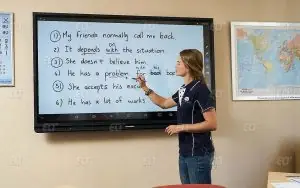 1) My friends normally call me back.
2) It depends with the situation
on
3) She doesn't believe him
4) He has a problem
5) She accepts his
6) He has a lot of works